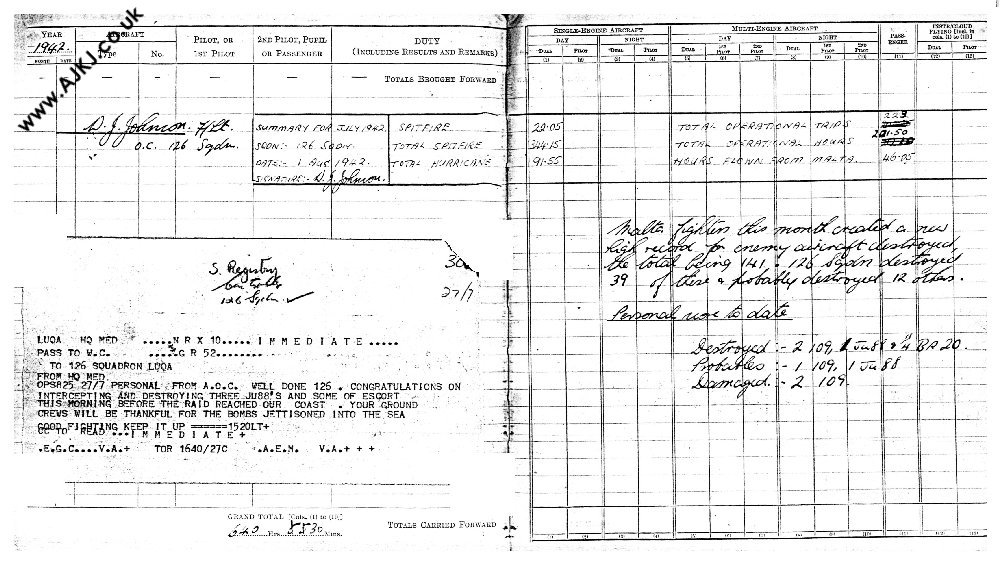 www.AJKJ.co.uk
YEAR AIRCRAFT PILOT, OR 2ND PILOT, PUPIL DUTY
1942. Type No. 1ST PILOT OR PASSENGER (INCLUDING RESULTS AND REMARKS)
MONTH DATE
— — — — TOTALS BROUGHT FORWARD
D. J. Johnson. F/Lt. SUMMARY FOR JULY, 1942. SPITFIRE
O.C. 126 Sqdn. SQDN:- 126 SQDN. TOTAL SPITFIRE
DATE:- 1 AUG 1942. TOTAL HURRICANE
SIGNATURE:- D. J. Johnson.
S. Registry
126 Sqdn
30
27/7
LUQA HQ MED .....N R X 10..... I M M E D I A T E .....
PASS TO W.C. .....G R 52........
TO 126 SQUADRON LUQA
FROM HQ MED
OPS825 27/7 PERSONAL FROM A.O.C. WELL DONE 126 . CONGRATULATIONS ON
INTERCEPTING AND DESTROYING THREE JU88'S AND SOME OF ESCORT
THIS MORNING BEFORE THE RAID REACHED OUR COAST . YOUR GROUND
CREWS WILL BE THANKFUL FOR THE BOMBS JETTISONED INTO THE SEA
GOOD FIGHTING KEEP IT UP ======1520LT+
CC TO READ ...I M M E D I A T E +
.E.G.C....V.A.+ TOR 1640/27C .A.E.M. V.A.+ + +
GRAND TOTAL [Cols. (1) to (10)]
Hrs. Mins.
TOTALS CARRIED FORWARD
SINGLE-ENGINE AIRCRAFT MULTI-ENGINE AIRCRAFT PASS-ENGER INSTR/CLOUD FLYING [Incl. in cols. (1) to (10)]
DAY NIGHT DAY NIGHT
DUAL PILOT DUAL PILOT DUAL 1ST PILOT 2ND PILOT DUAL 1ST PILOT 2ND PILOT DUAL PILOT
(1) (2) (3) (4) (5) (6) (7) (8) (9) (10) (11) (12) (13)
TOTAL OPERATIONAL TRIPS 223
344.15 TOTAL OPERATIONAL HOURS
91.55 HOURS FLOWN FROM MALTA. 46.05
Malta fighters this month created a new
high record for enemy aircraft destroyed,
the total being 141. 126 Sqdn destroyed
39 of these & probably destroyed 12 others.
Personal score to date
Destroyed :- 2 109, 1 Ju 88 & ¼ BR 20.
Probables :- 1 109, 1 Ju 88
Damaged :- 2 109